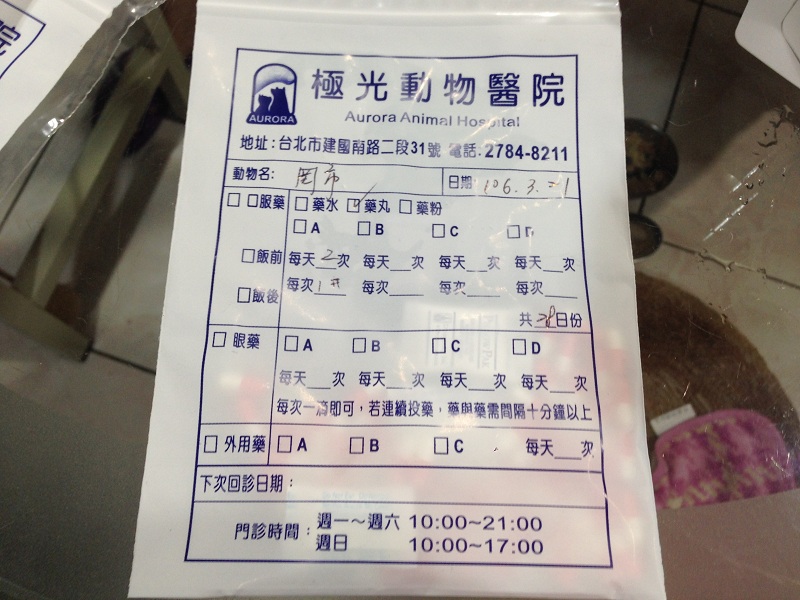 院
AURORA
極光動物醫院
Aurora Animal Hospital
地址:台北市建國南路二段31號 電話:2784-8211
動物名: 罔市 日期 106.3.21
□ □服藥 □ 藥水 ☑ 藥丸 □ 藥粉
□ A □ B □ C □ D
□飯前 每天 2 次 每天___次 每天___次 每天___次
□飯後 每次 1 每次____ 每次____ 每次____
共 28 日份
□ 眼藥 □ A □ B □ C □ D
每天___次 每天___次 每天___次 每天___次
每次一滴即可,若連續投藥,藥與藥需間隔十分鐘以上
□ 外用藥 □ A □ B □ C 每天___次
下次回診日期:
門診時間: 週一～週六 10:00~21:00
週日 10:00~17:00